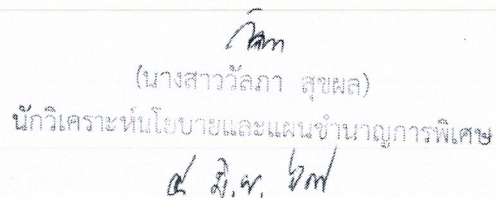 (นางสาววัลภา สุขผล)
นักวิเคราะห์นโยบายและแผนชำนาญการพิเศษ
มิ.ย.